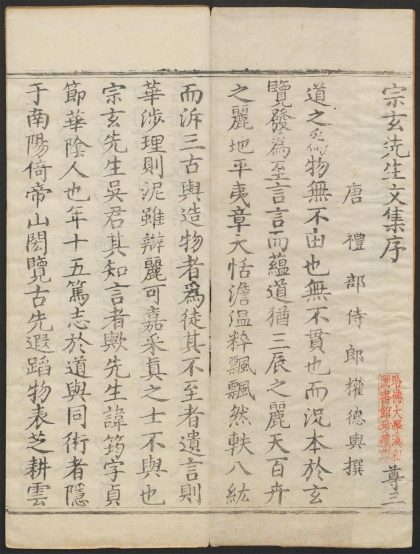 宗玄先生文集序
尊三
唐禮部侍郎權德輿撰
道之爲物無不由也無不貫也而況本於玄
覽發爲至言言而蘊道猶三辰之麗天百卉
之麗地平夷章大恬澹溫粹飄飄然軼八紘
而泝三古與造物者爲徒其不至者遺言則
華涉理則泥雖辯麗可嘉采真之士不與也
宗玄先生吳君其知言者歟先生諱筠字貞
節華陰人也年十五篤志於道與同術者隱
于南陽倚帝山閎覽古先遐蹈物表芝耕雲
哈佛大學漢和
圖書館珍藏印